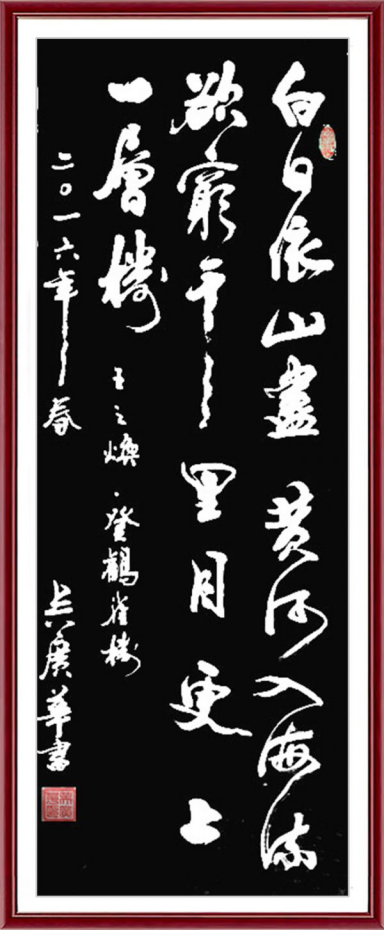 白日依山盡黄河入海流
欲窮千里月更上
一層樓
王之煥·登鶴雀樓
二〇一六年春
吴廣華書